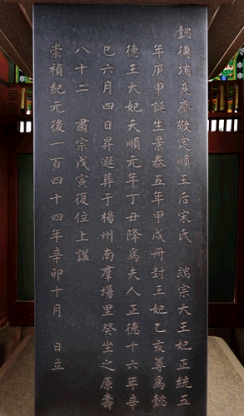 懿德端良齊敬定順王后宋氏　端宗大王妃正統五
年庚申誕生景泰五年甲戌冊封王妃乙亥尊爲懿
德王大妃天順元年丁丑降爲夫人正德十六年辛
巳六月四日昇遐葬于楊州南羣場里癸坐之原壽
八十二　肅宗戊寅復位上諡
崇禎紀元後一百四十四年辛卯十月　日立